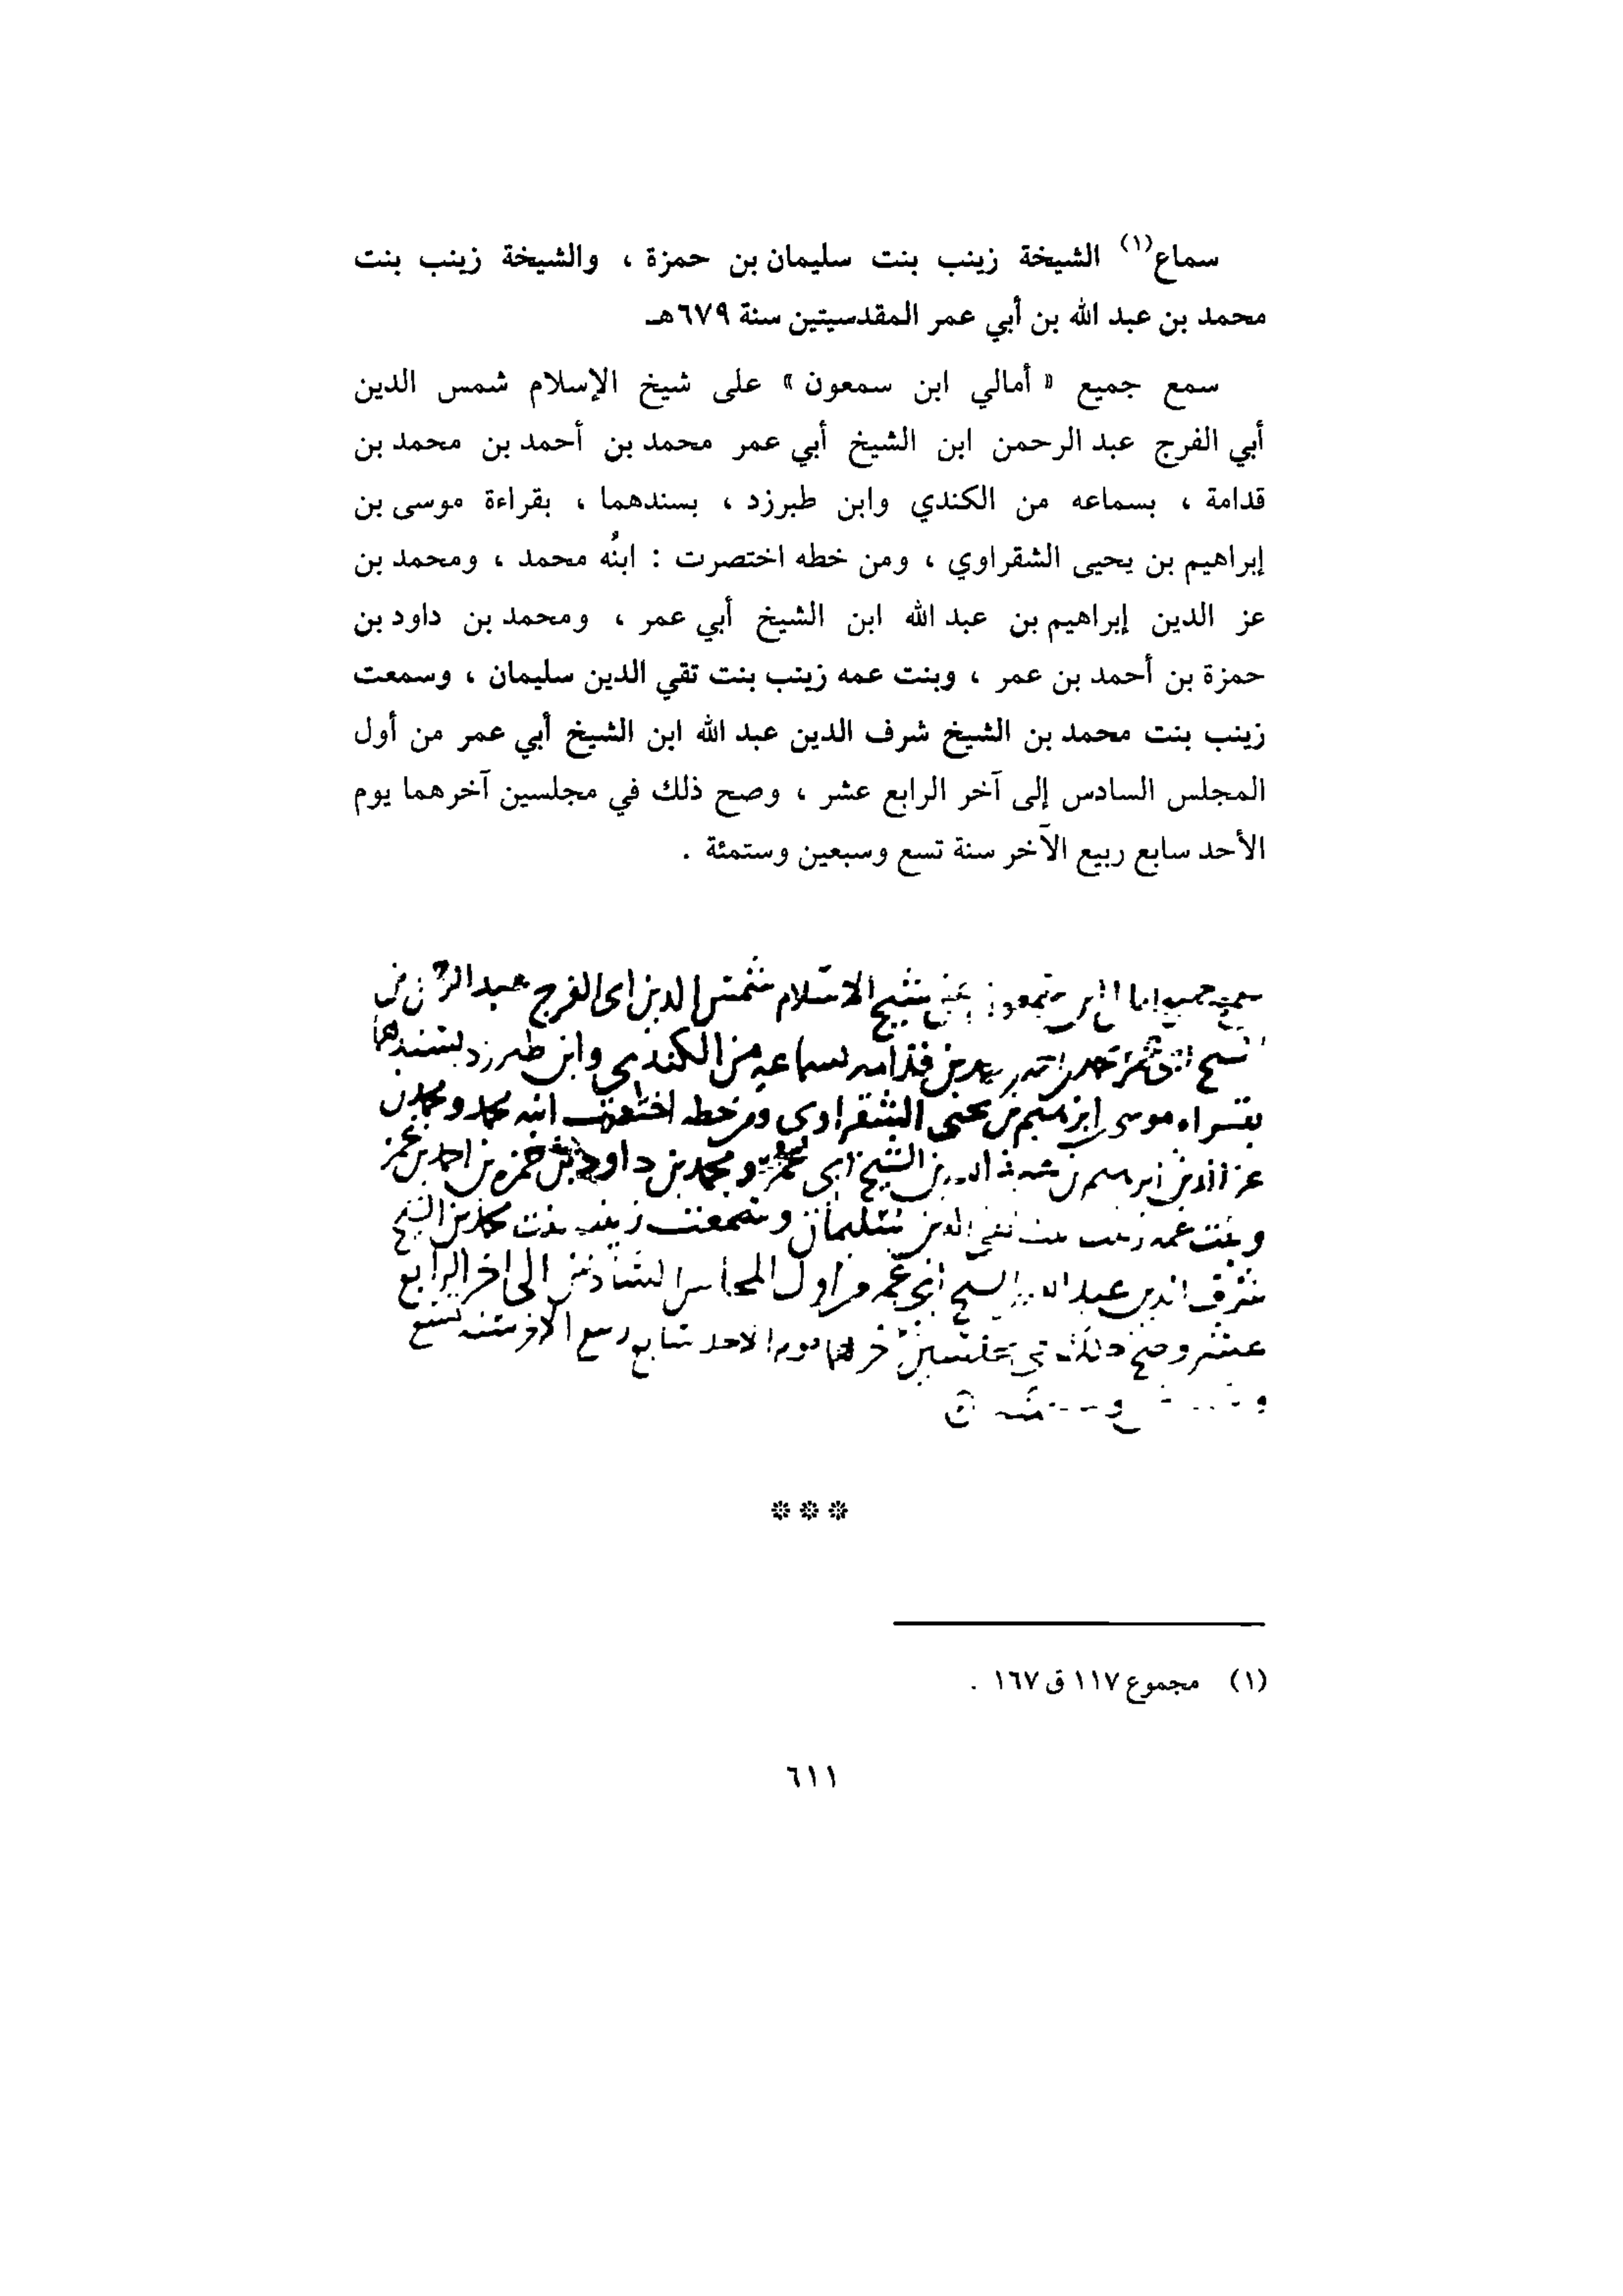 سماع(١) الشيخة زينب بنت سليمان بن حمزة ، والشيخة زينب بنت
محمد بن عبد الله بن أبي عمر المقدسيتين سنة ٦٧٩هـ
سمع جميع « أمالي ابن سمعون » على شيخ الإسلام شمس الدين
أبي الفرج عبد الرحمن ابن الشيخ أبي عمر محمد بن أحمد بن محمد بن
قدامة ، بسماعه من الكندي وابن طبرزد ، بسندهما ، بقراءة موسى بن
إبراهيم بن يحيى الشقراوي ، ومن خطه اختصرت : ابنُه محمد ، ومحمد بن
عز الدين إبراهيم بن عبد الله ابن الشيخ أبي عمر ، ومحمد بن داود بن
حمزة بن أحمد بن عمر ، وبنت عمه زينب بنت تقي الدين سليمان ، وسمعت
زينب بنت محمد بن الشيخ شرف الدين عبد الله ابن الشيخ أبي عمر من أول
المجلس السادس إلى آخر الرابع عشر ، وصح ذلك في مجلسين آخرهما يوم
الأحد سابع ربيع الآخر سنة تسع وسبعين وستمئة .
شيخ الاسلام شمس الدين ابى الفرج عبد الرحمن بن
الشيخ ابى عمر محمد بن احمد بن محمد بن قدامه بسماعه من الكندي وابن طبرزد بسندهما
بقراءه موسى ابن ابرهيم بن يحيى الشقراوي ومن خطه اختصرت ابنه محمد ومحمد بن
عز الدين ابرهيم بن الشيخ ابى عمر ومحمد بن داود بن حمزه بن احمد بن عمر
وبنت عمه زينب بنت تقي الدين سليمان وسمعت زينب بنت محمد بن الشيخ
شرف الدين عبد الله بن الشيخ ابى عمر من اول المجلس السادس الى اخر الرابع
عشر وصح ذلك في مجلسين اخرهما يوم الاحد سابع ربيع الاخر سنه تسع
(١) مجموع ١١٧ ق ١٦٧ .
٦١١